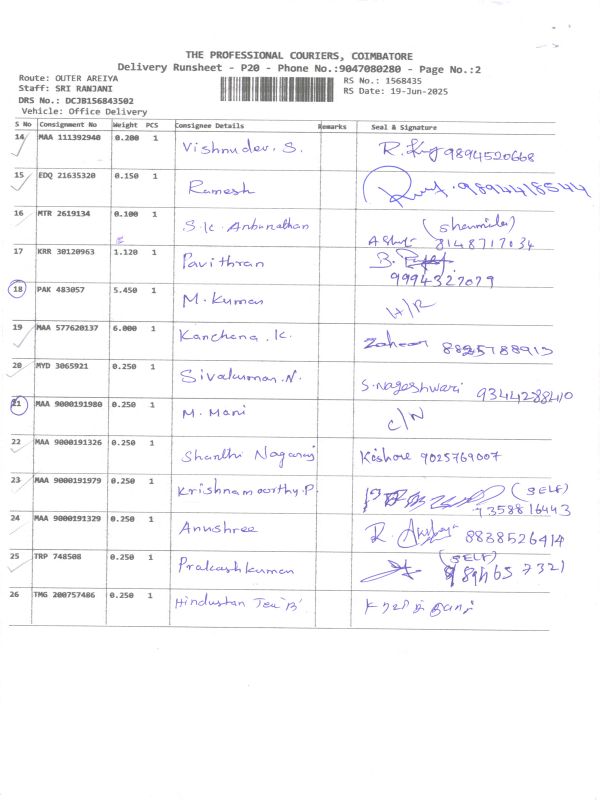 THE PROFESSIONAL COURIERS, COIMBATORE
Delivery Runsheet - P20 - Phone No.:9047080280 - Page No.:2
Route: OUTER AREIYA
Staff: SRI RANJANI
DRS No.: DCJB156843502
Vehicle: Office Delivery
RS No.: 1568435
RS Date: 19-Jun-2025
S No Consignment No Weight PCS Consignee Details Remarks Seal & Signature
14 MAA 111392940 0.200 1 Vishnudev. S. 9894520668
15 EDQ 21635320 0.150 1 Ramesh 9894418544
16 MTR 2619134 0.100 1 S.K. Anbunathan (Sharmila) 8148717034
17 KRR 30120963 1.120 1 Pavithran 9994327079
18 PAK 483057 5.450 1 M. Kumar H/R
19 MAA 577620137 6.000 1 Kanchana. K. Zaheer 8825788913
20 MYD 3065921 0.250 1 Sivakumar. N. S. Nageshwari 9344288410
21 MAA 9000191980 0.250 1 M. Mani C/N
22 MAA 9000191326 0.250 1 Shanthi Nagaraj Kishore 9025769007
23 MAA 9000191979 0.250 1 Krishnamoorthy. P. (SELF) 9358816443
24 MAA 9000191329 0.250 1 Anushree R. 8838526414
25 TRP 748508 0.250 1 Prakashkumar (SELF)
26 TMG 200757486 0.250 1 Hindustan Tea 'B'